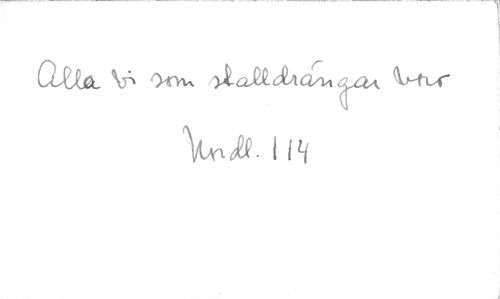 Alla vi som stalldrängar voro
Nordl. 114